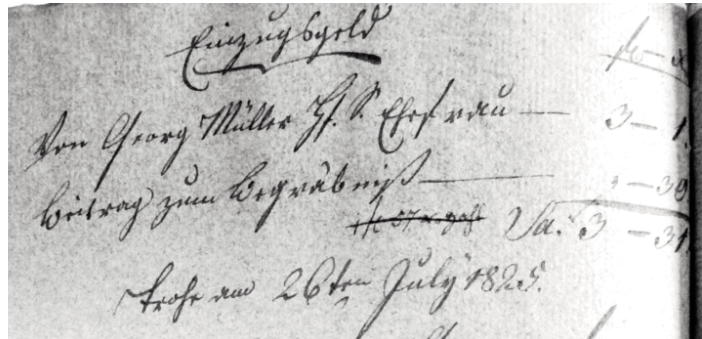 Einzugsgeld
f – x
Von Georg Müller Hs. S. Ehefrau — 3 – 1.
Beitrag zum Begräbniß — " – 30
Sa. 3 – 31.
Trohe am 26ten July 1825.